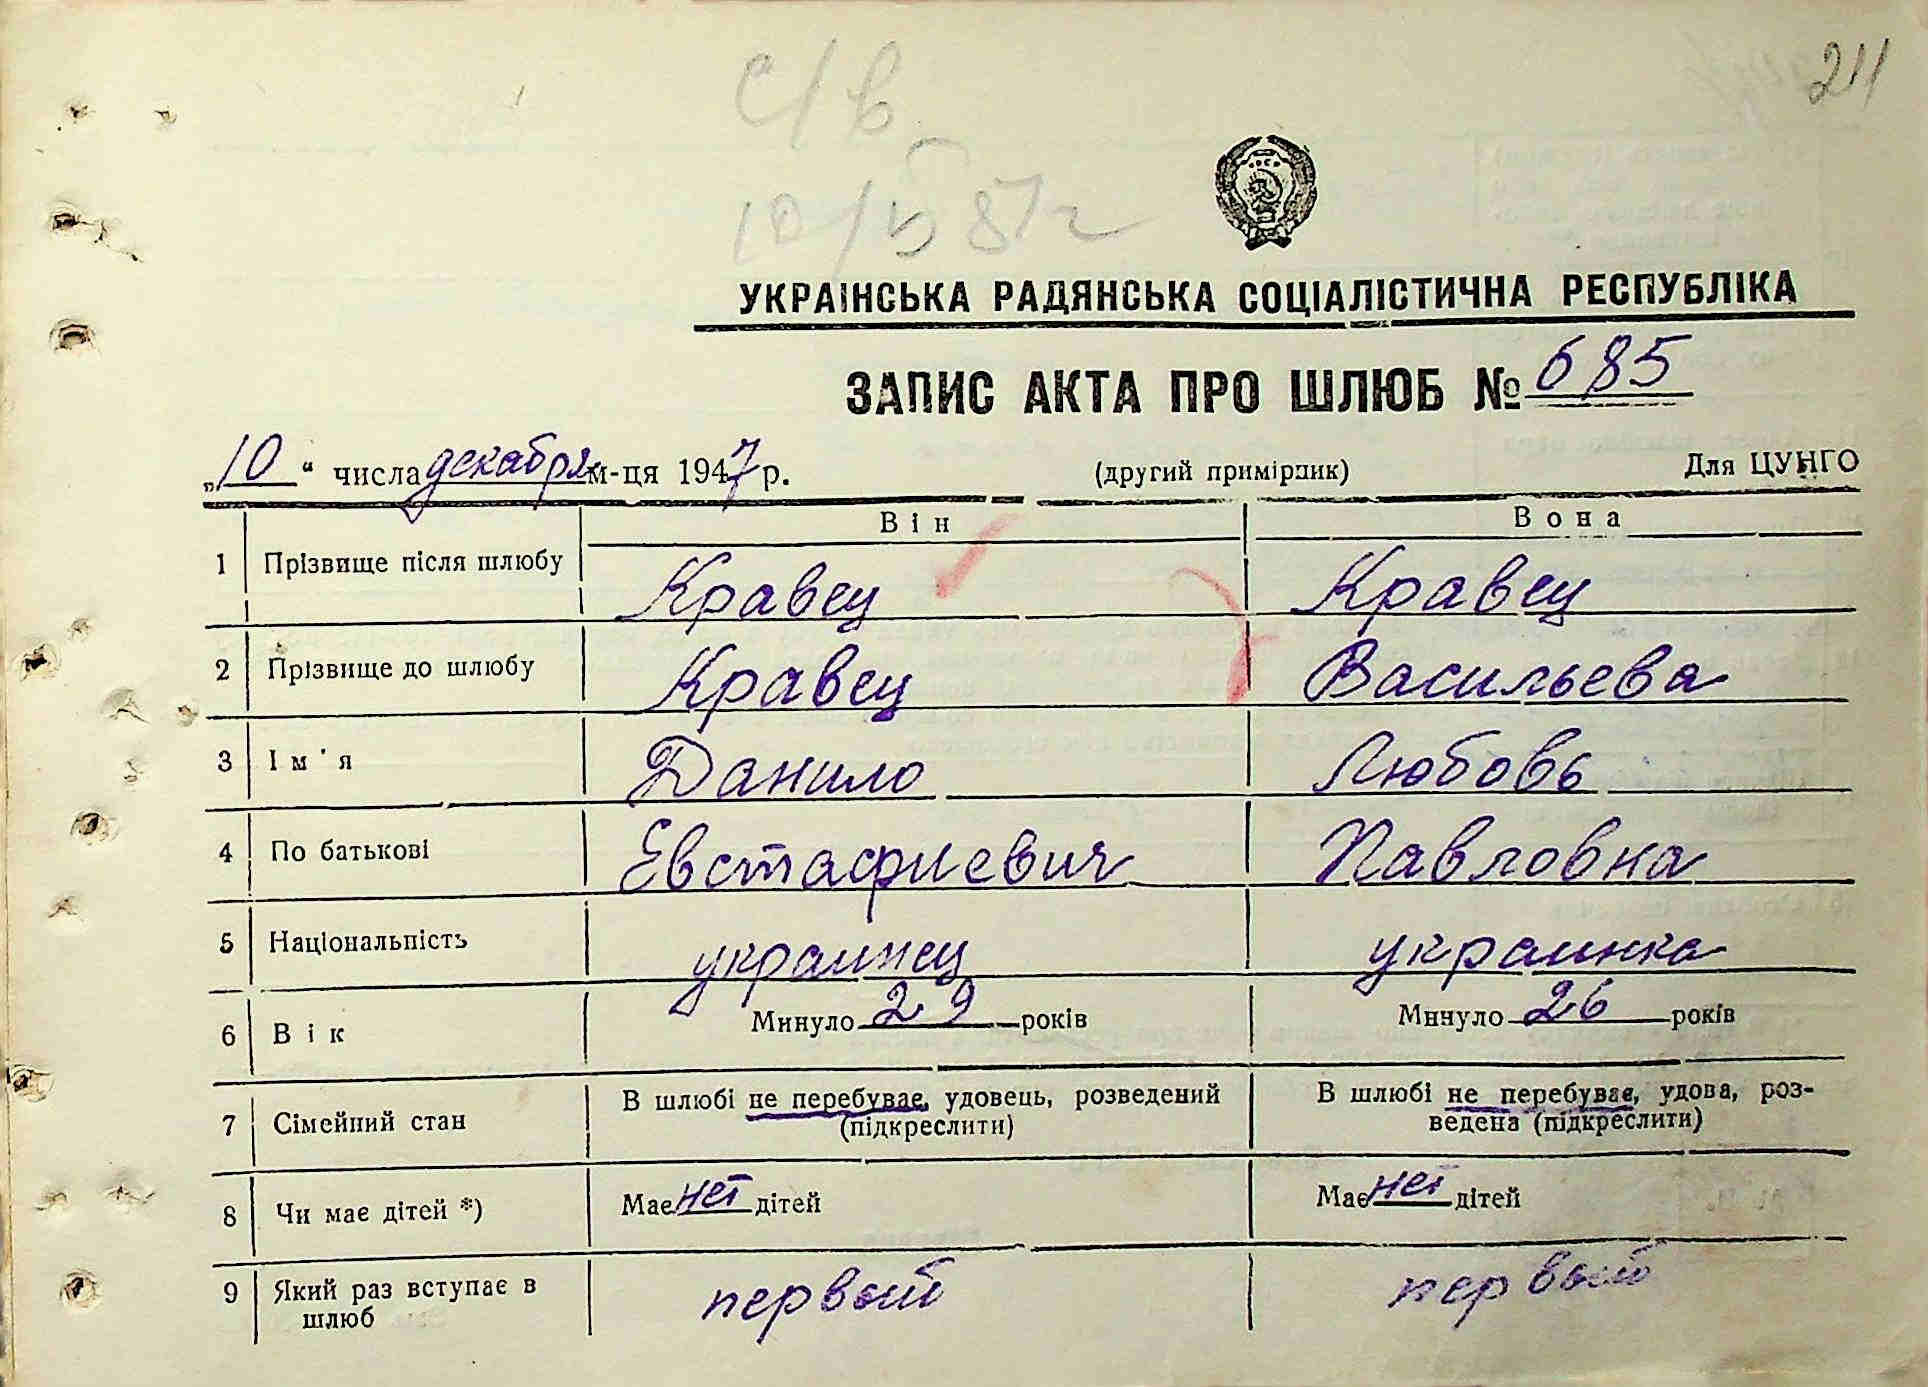 211
с/в
10/V 87 г
УКРАЇНСЬКА РАДЯНСЬКА СОЦІАЛІСТИЧНА РЕСПУБЛІКА
ЗАПИС АКТА ПРО ШЛЮБ № 685
„10“ числа декабря м-ця 1947 р. (другий примірник) Для ЦУНГО
Він Вона
1 Прізвище після шлюбу Кравец Кравец
2 Прізвище до шлюбу Кравец Васильева
3 Ім'я Данило Любовь
4 По батькові Евстафиевич Павловна
5 Національність украинец украинка
6 Вік Минуло 29 років Минуло 26 років
7 Сімейний стан В шлюбі не перебуває, удовець, розведений В шлюбі не перебуває, удова, роз-
(підкреслити) ведена (підкреслити)
8 Чи має дітей *) Має нет дітей Має нет дітей
9 Який раз вступає в первый первый
шлюб